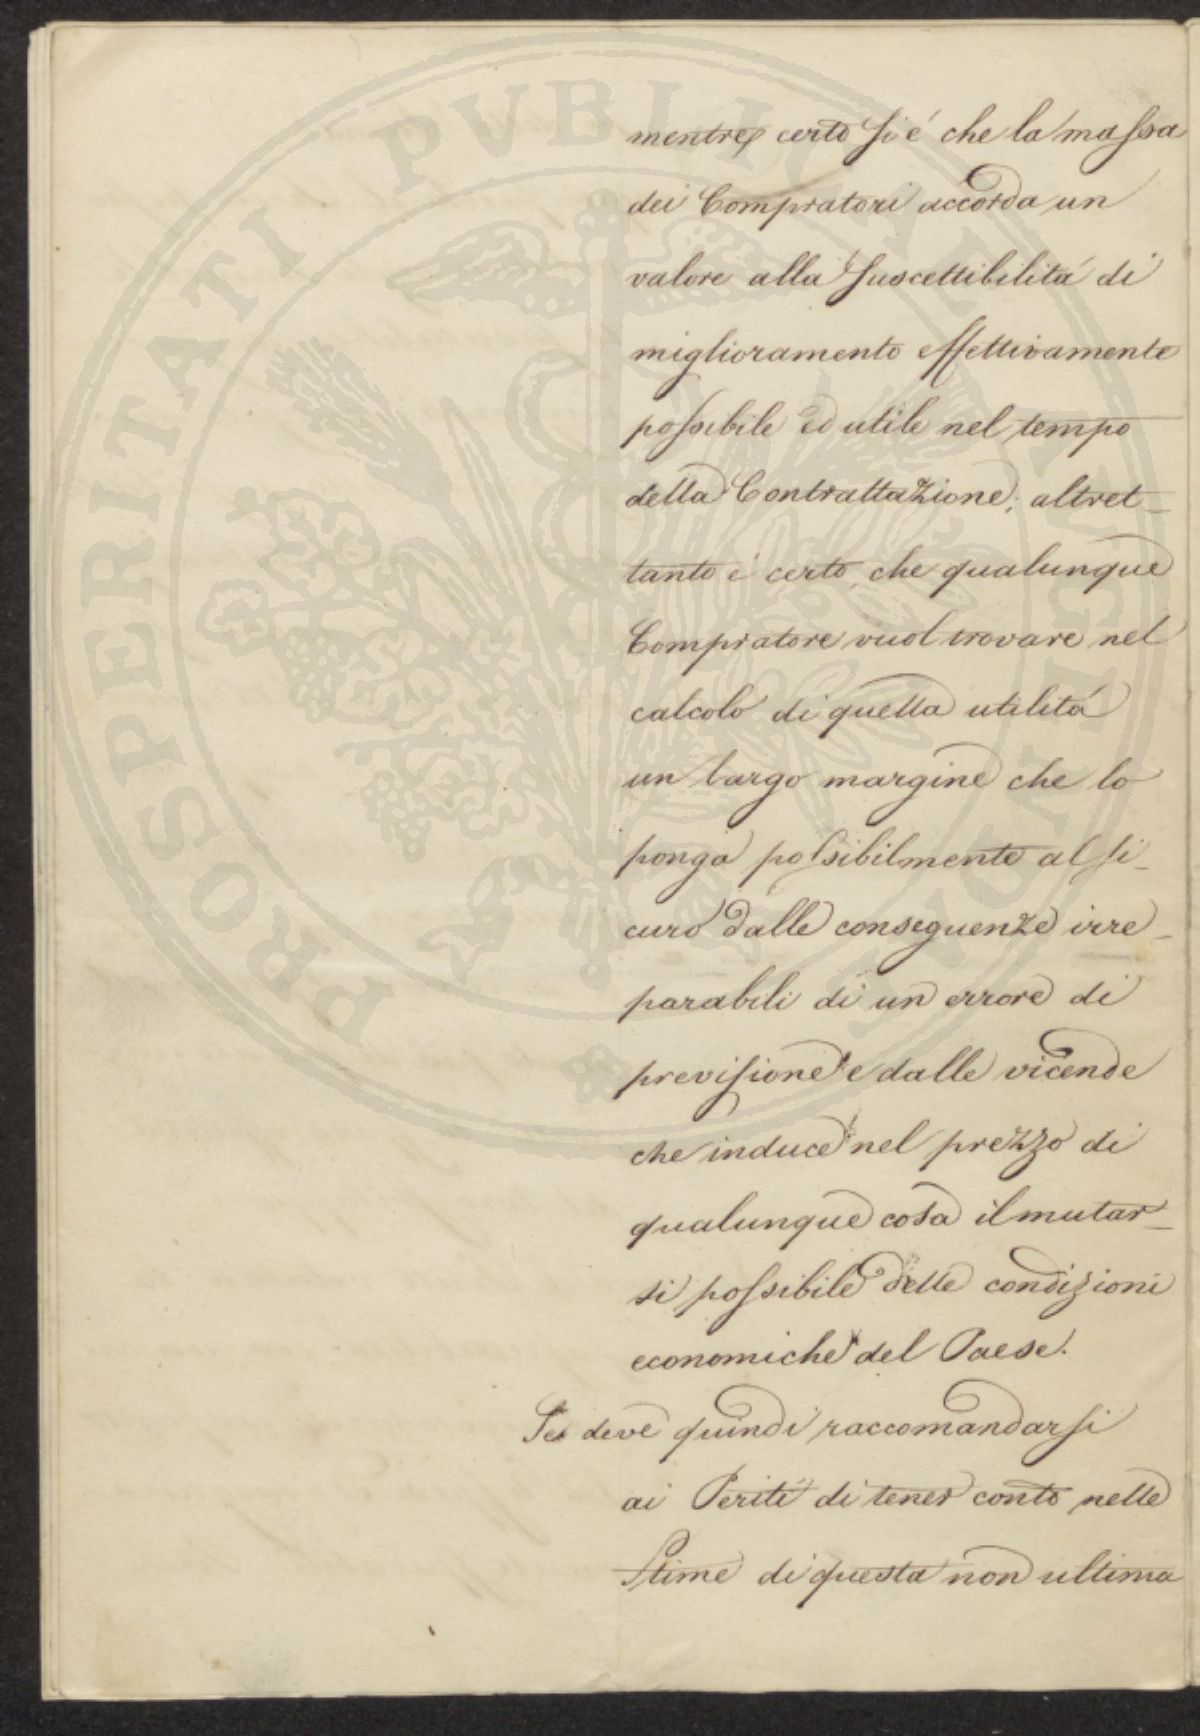 mentre certo si é che la massa
dei Compratori accorda un
valore alla suscettibilitá di
miglioramento effettivamente
possibile ed utile nel tempo
della Contrattazione; altret_
tanto é certo che qualunque
Compratore vuol trovare nel
calcolo di quella utilitá
un largo margine che lo
ponga possibilmente al si_
curo dalle conseguenze irre_
parabili di un errore di
previsione e dalle vicende
che induce nel prezzo di
qualunque cosa il mutar_
si possibile delle condizioni
economiche del Paese.
Si deve quindi raccomandarsi
ai Periti di tener conto nelle
Stime di questa non ultima
PROSPERITATI PVBLICAE